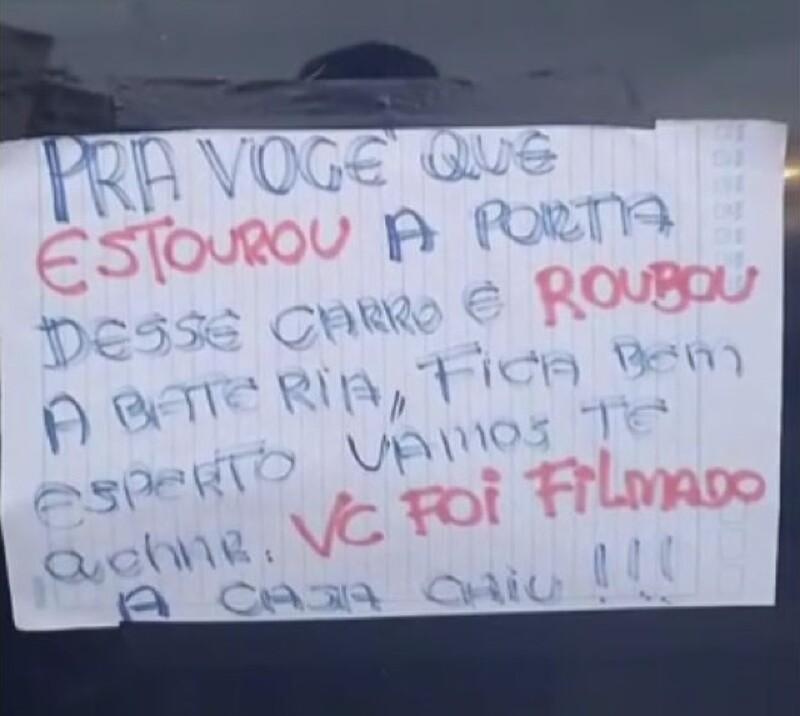 PRA VOCÊ QUE
ESTOUROU A PORTA
DESSE CARRO E ROUBOU
A BATERIA, FICA BEM
ESPERTO VAMOS TE
ACHAR. VC FOI FILMADO
A CASA CAIU!!!